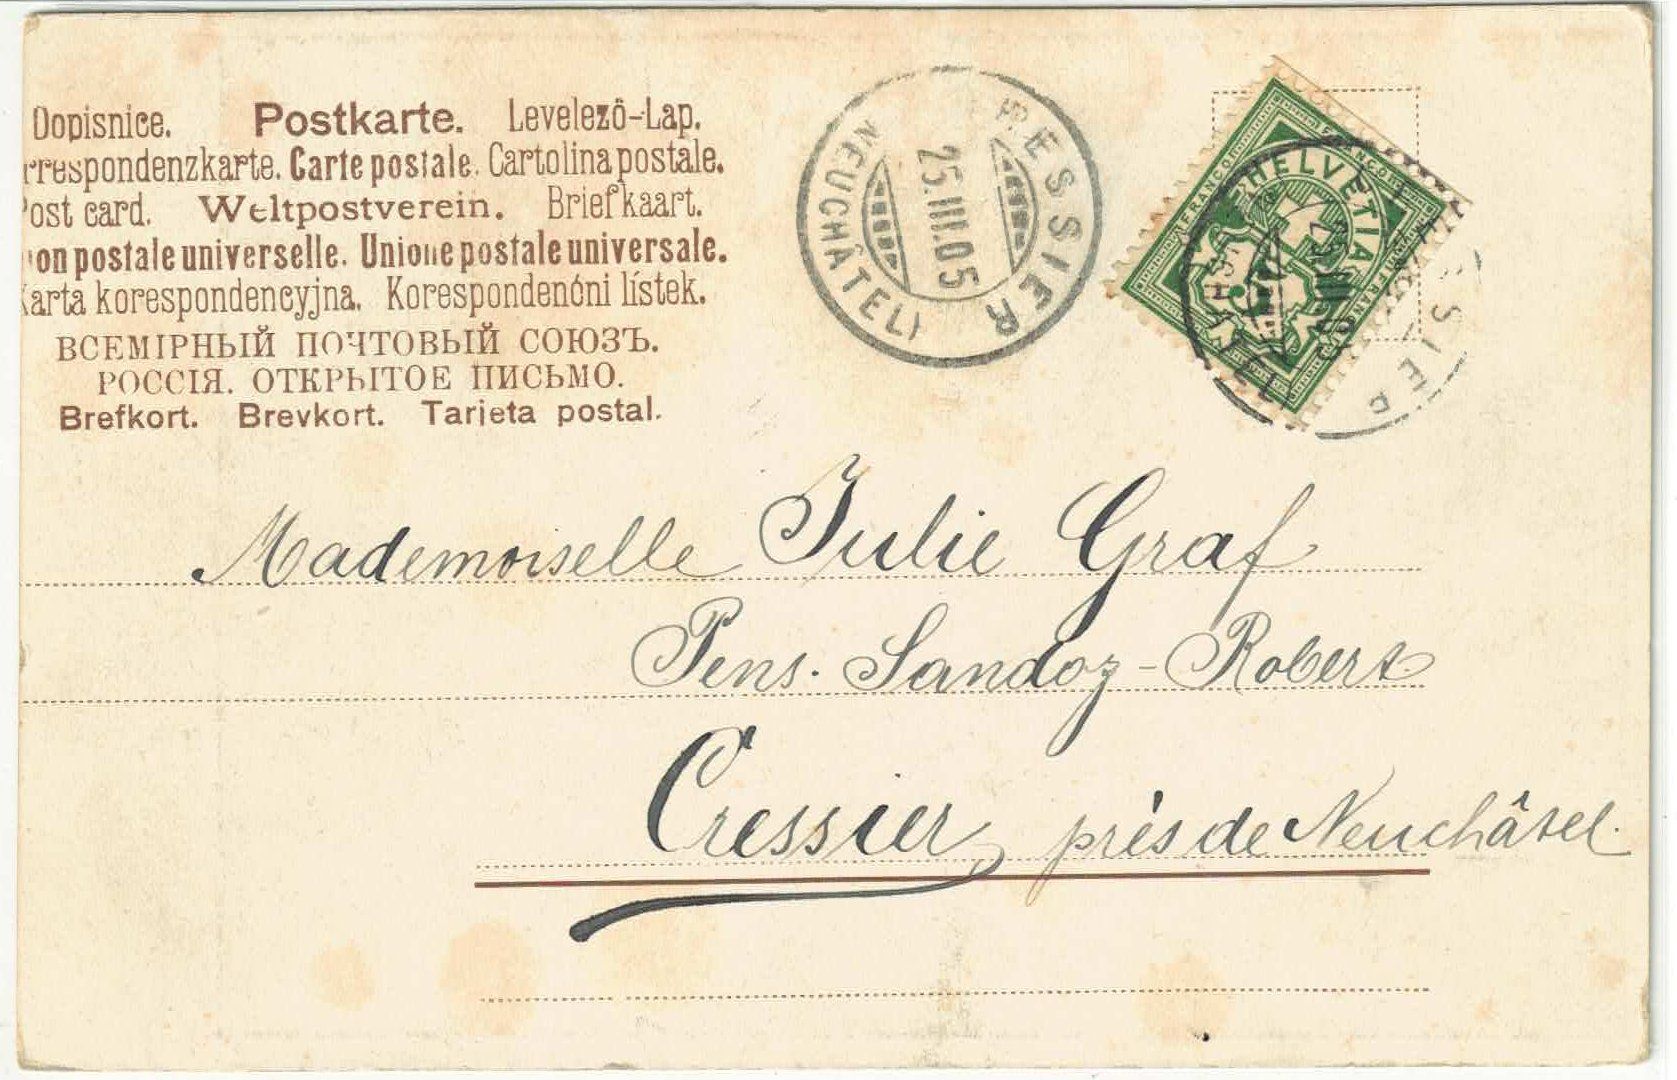 Dopisnice. Postkarte. Levelező-Lap.
rrespondenzkarte. Carte postale. Cartolina postale.
ost card. Weltpostverein. Briefkaart.
on postale universelle. Unione postale universale.
arta korespondencyjna. Korespondenční lístek.
ВСЕМІРНЫЙ ПОЧТОВЫЙ СОЮЗЪ.
РОССІЯ. ОТКРЫТОЕ ПИСЬМО.
Brefkort. Brevkort. Tarjeta postal.
CRESSIER
25.III.05
(NEUCHÂTEL)
HELVETIA
FRANCO
Mademoiselle Julie Graf
Pens. Sandoz-Robert
Cressier près de Neuchâtel.